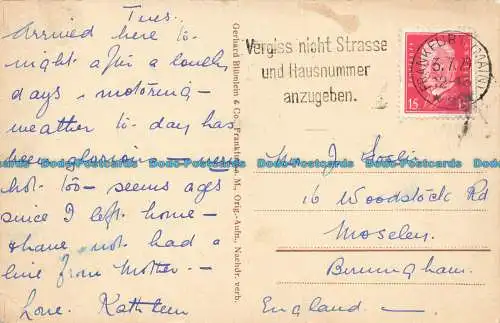 Tues.
Arrived here to
night after a lovely
days motoring –
weather to-day has
been glorious – very
hot too – seems ages
since I left home –
& have not had a
line from Mother. –
Love. Kathleen
Gerhard Blümlein & Co., Frankfurt a. M., Orig.-Aufn., Nachdr. verb.
Vergiss nicht Strasse
und Hausnummer
anzugeben.
FRANKFURT (MAIN)
15
Mrs J
16 Woodstock Rd
Moseley.
Birmingham.
England.
Dodo-Postcards Dodo-Postcards Dodo-Postcards Dodo-Postcards